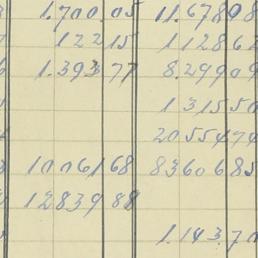 1.700.05 11.678 98
122 15 1 128 62
1.393 77 8.299 09
1 315 50
20 554 74
10 061 68 83 606 85
12 839 88
1.143.70